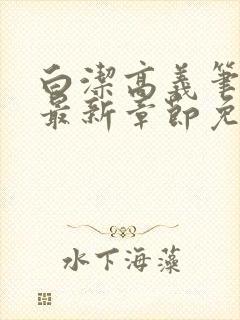 白潔高義筆
最新章節免
水下海藻